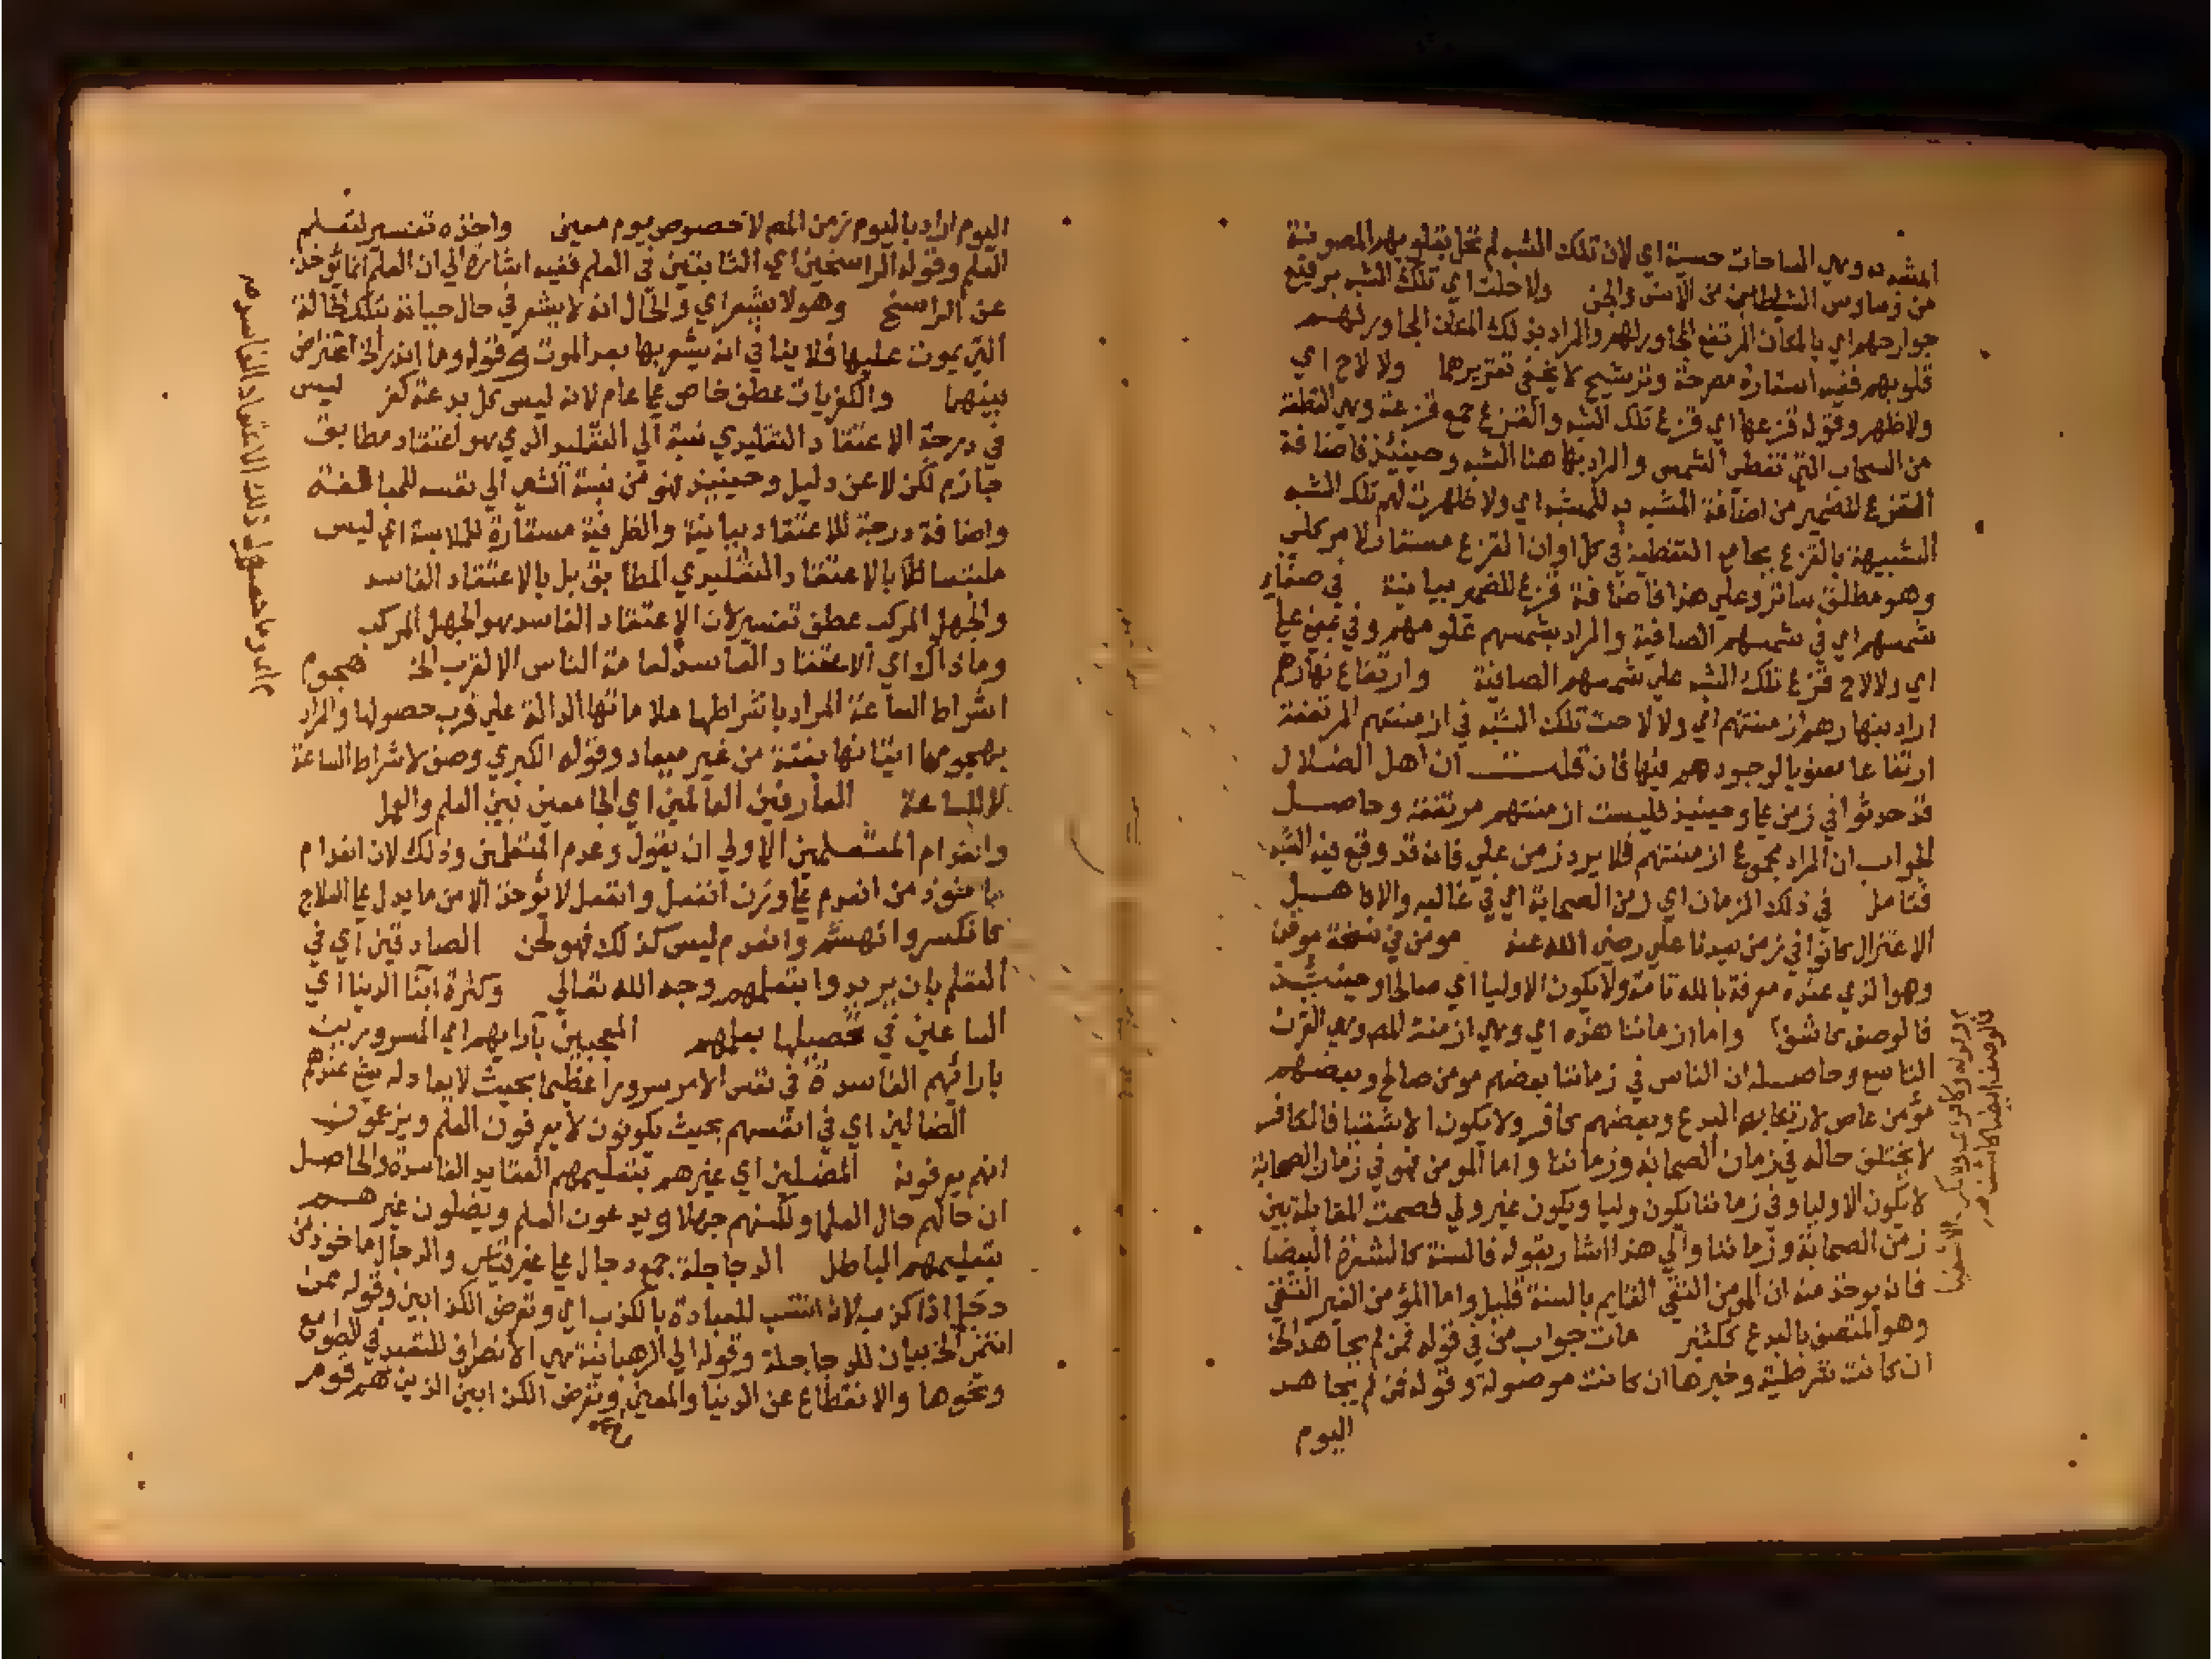 المشبه به وهي الساحات حسية اي لان تلك الشبه لم تحل بقلوبهم المصونة
من وساوس الشياطين من الانس والجن ولا حلت اي تلك الشبه برفيع
جوارحهم اي بالمكان المرتفع المجاور لهم والمراد بذلك المكان المجاور لهم
قلوبهم ففيه استعارة مصرحة وترشيح لا يخفى تقريرهما ولا لاح اي
ولا ظهر وقوله قزعها اي قزع تلك الشبه والقزع جمع قزعة وهي القطعة
من السحاب التي تغطي الشمس والمراد بها هنا الشبه وحينيذ فاضافة
القزع للضمير من اضافة المشبه به للمشبه اي ولا ظهرت لهم تلك الشبه
الشبيهة بالقزع بجامع التغطية في كل او ان القزع مستعار لامر كلي
وهو مطلق ساتر وعلى هذا فاضافة قزع للضمير بيانية في صفاء
شمسهم اي في شمسهم الصافية والمراد بشمسهم علومهم وفي بمعنى علي
اي ولا لاح قزع تلك الشبه علي شمسهم الصافية وارتفاع نهارهم
اراد بنهارهم ازمنتهم اي ولا لاحت تلك الشبه في ازمنتهم المرتفعة
ارتفاعا معنويا لوجودهم فيها فان قلت ان اهل الضلال
قد حدثوا في زمن علي وحينيذ فليست ازمنتهم مرتفعة وحاصل
الجواب ان المراد مجموع ازمنتهم فلا يرد زمن علي فانه قد وقع فيه الشبه
فتامل في ذلك الزمان اي زمن الصحابة اي في غالبه والا فاهل
الاعتزال كانوا في زمن سيدنا علي رضي الله عنه مومن في نسخة موقن
وهو الذي عنده معرفة بالله تامة ولا يكون الا وليا اي صالحا وحينيذ
فالوصف كاشف واما ازماننا هذه اي وهي ازمنة المص وهي القرن
التاسع وحاصله ان الناس في زماننا بعضهم مومن صالح وبعضهم
مؤمن عاص لارتكابه البدع وبعضهم كافر ولا يكون الا شقيا فالكافر
لا يختلف حاله في زمان الصحابة وزماننا واما المومن فهو في زمان الصحابة
لا يكون الا وليا وفي زماننا يكون وليا ويكون غير ولي فصحت المقابلة بين
زمن الصحابة وزماننا والي هذا اشار بقوله فالسنة كالشعرة البيضا
فانه يوخذ منه ان المومن التقي القايم بالسنة قليل واما المؤمن الغير التقي
وهو المتصف بالبدع فكثير مات جواب من في قوله فمن لم يجاهد الخ
ان كانت شرطية وخبرها ان كانت موصولة وقوله فمن لم يجاهد
اليوم
وقوله وكافر غبي ولا يكون الا شقيا
فالوصف ايضا كاشف
اليوم اراد باليوم زمن المص لا خصوص يوم معين واخذه تفسير لتعلم
العلم وقوله الراسخين اي الثابتين في العلم ففيه اشارة الي ان العلم انما يؤخذ
عن الراسخ وهو لا يشعر اي والحال انه لا يشعر في حال حياته بتلك الحالة
التي يموت عليها فلا ينافي انه يشعر بها بعد الموت وقوله وما انذر الخ اعتراض
بينهما والكفريات عطف خاص علي عام لانه ليس كل بدعة كفر ليس
في درجة الاعتقاد التقليدي نسبة الي التقليد الذي هو اعتقاد مطابق
جازم لكن لا عن دليل وحينيذ فهو من نسبة الشي الي نفسه للمبالغة
واضافة درجة للاعتقاد بيانية والظرفية مستعارة للملابسة اي ليس
ملتبسا بالاعتقاد التقليدي المطابق بل بالاعتقاد الفاسد
والجهل المركب عطف تفسير لان الاعتقاد الفاسد هو الجهل المركب
وما ذاك اي الاعتقاد الفاسد لعامة الناس الا لقرب الخ هجوم
اشراط الساعة المراد باشراطها علاماتها الدالة علي قرب حصولها والمراد
بهجومها اتيانها بغتة من غير ميعاد وقوله الكبري وصف لاشراط الساعة
لا للساعة العارفين العالمين اي الجامعين بين العلم والعمل
وانعدام المتعلمين الاولي ان يقول وعدم المتعلمين وذلك لان انعدام
ماخوذ من انعدم علي وزن انفعل وانفعل لا يؤخذ الا من ما يدل علي العلاج
كانكسر وانهشم وانعدم ليس كذلك فهو لحن الصادقين اي في
التعلم بان يريدوا بتعلمهم وجه الله تعالي وكثرة ابنا الدنيا اي
الساعين في تحصيلها بعلمهم المعجبين بآرايهم اي المسرورين
بارائهم الفاسدة في نفس الامر سرورا عظيما بحيث لا يعادله شي عندهم
الضالين اي في انفسهم بحيث يكونون لا يعرفون العلم ويزعمون
انهم يعرفونه المضلين اي غيرهم بتعليمهم العقايد الفاسدة والحاصل
ان حالهم حال العلما ولكنهم جهلا ويدعون العلم ويضلون غيرهم
بتعليمهم الباطل الدجاجلة جمع دجال علي غير قياس والدجال ماخوذ من
دجل اذا كذب لانه انتسب للعبادة بالكذب اي وتعرض الكذابين وقوله ممن
انتمي الخ بيان للدجاجلة وقوله الي الرهبانية هي الانصراف للتعبد في الصوامع
ونحوها والانقطاع عن الدنيا والمعني وتعرض الكذابين الذين هم قوم
اي وما حصول ذلك الاعتقاد الفاسد